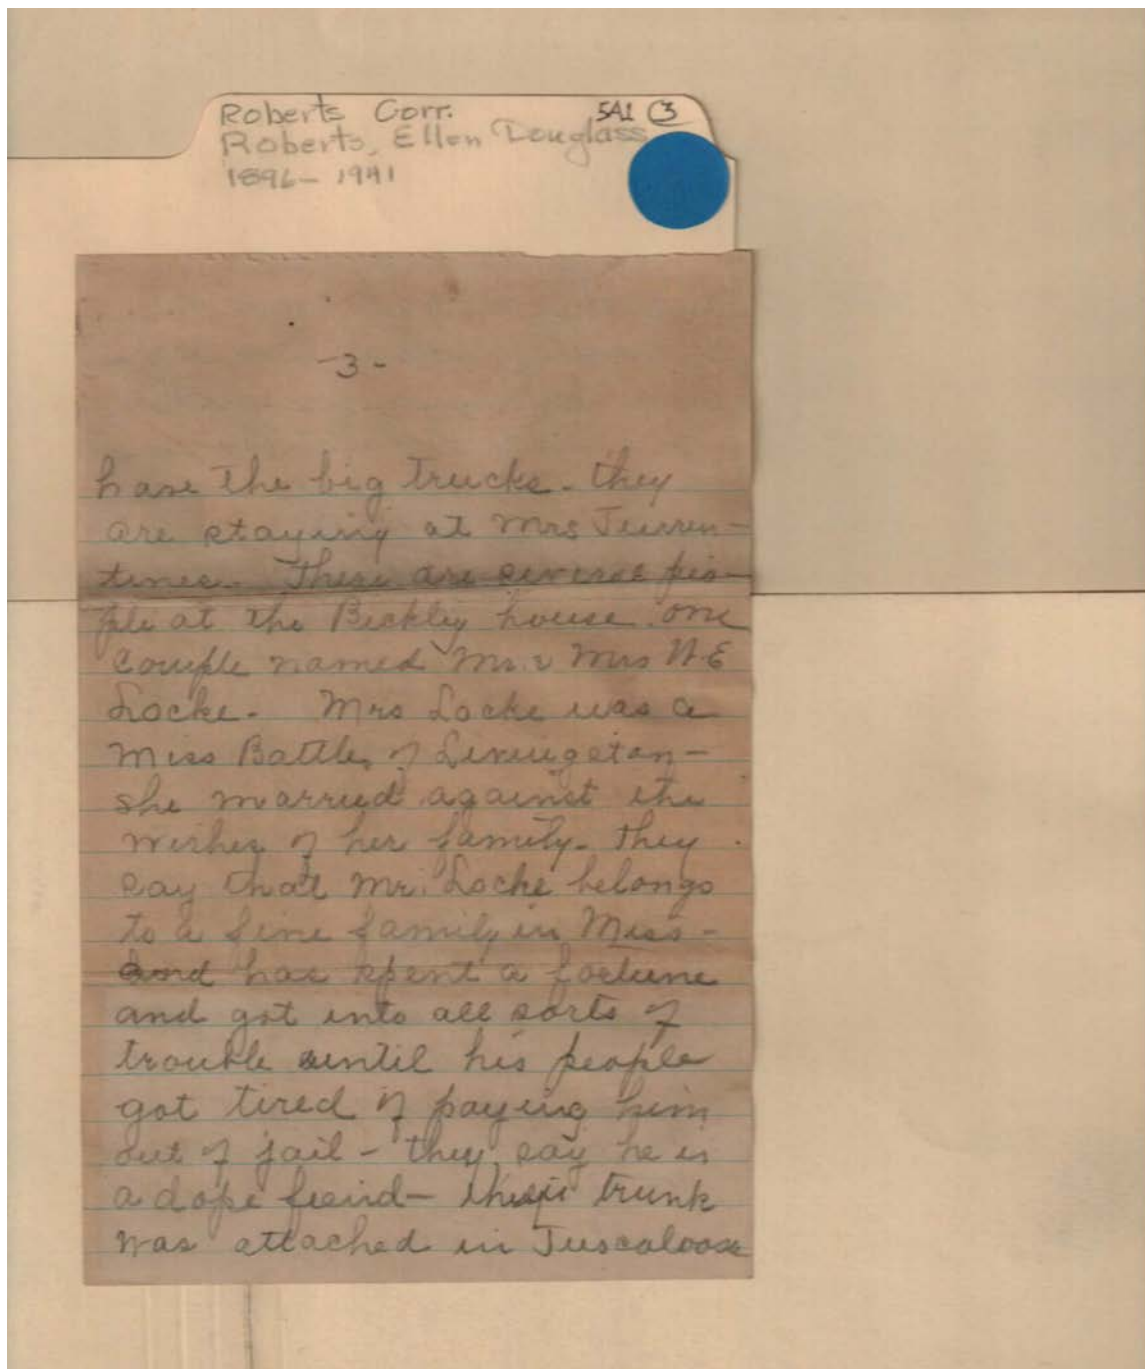 Roberts Corr. 5A1 3
Roberts, Ellen Douglass
1896-1941
-3-
have the big trucks - they
are staying at Mrs Turren-
tines. There are several peo-
ple at the Beckley house. one
couple named Mr. & Mrs W.E
Locke - Mrs Locke was a
Miss Battle, of Livingston -
she married against the
wishes of her family - they
say that Mr. Locke belongs
to a fine family in Miss -
and has spent a fortune
and got into all sorts of
trouble until his people
got tired of paying him
out of jail - they say he is
a dope feind - their trunk
was attached in Tuscaloosa